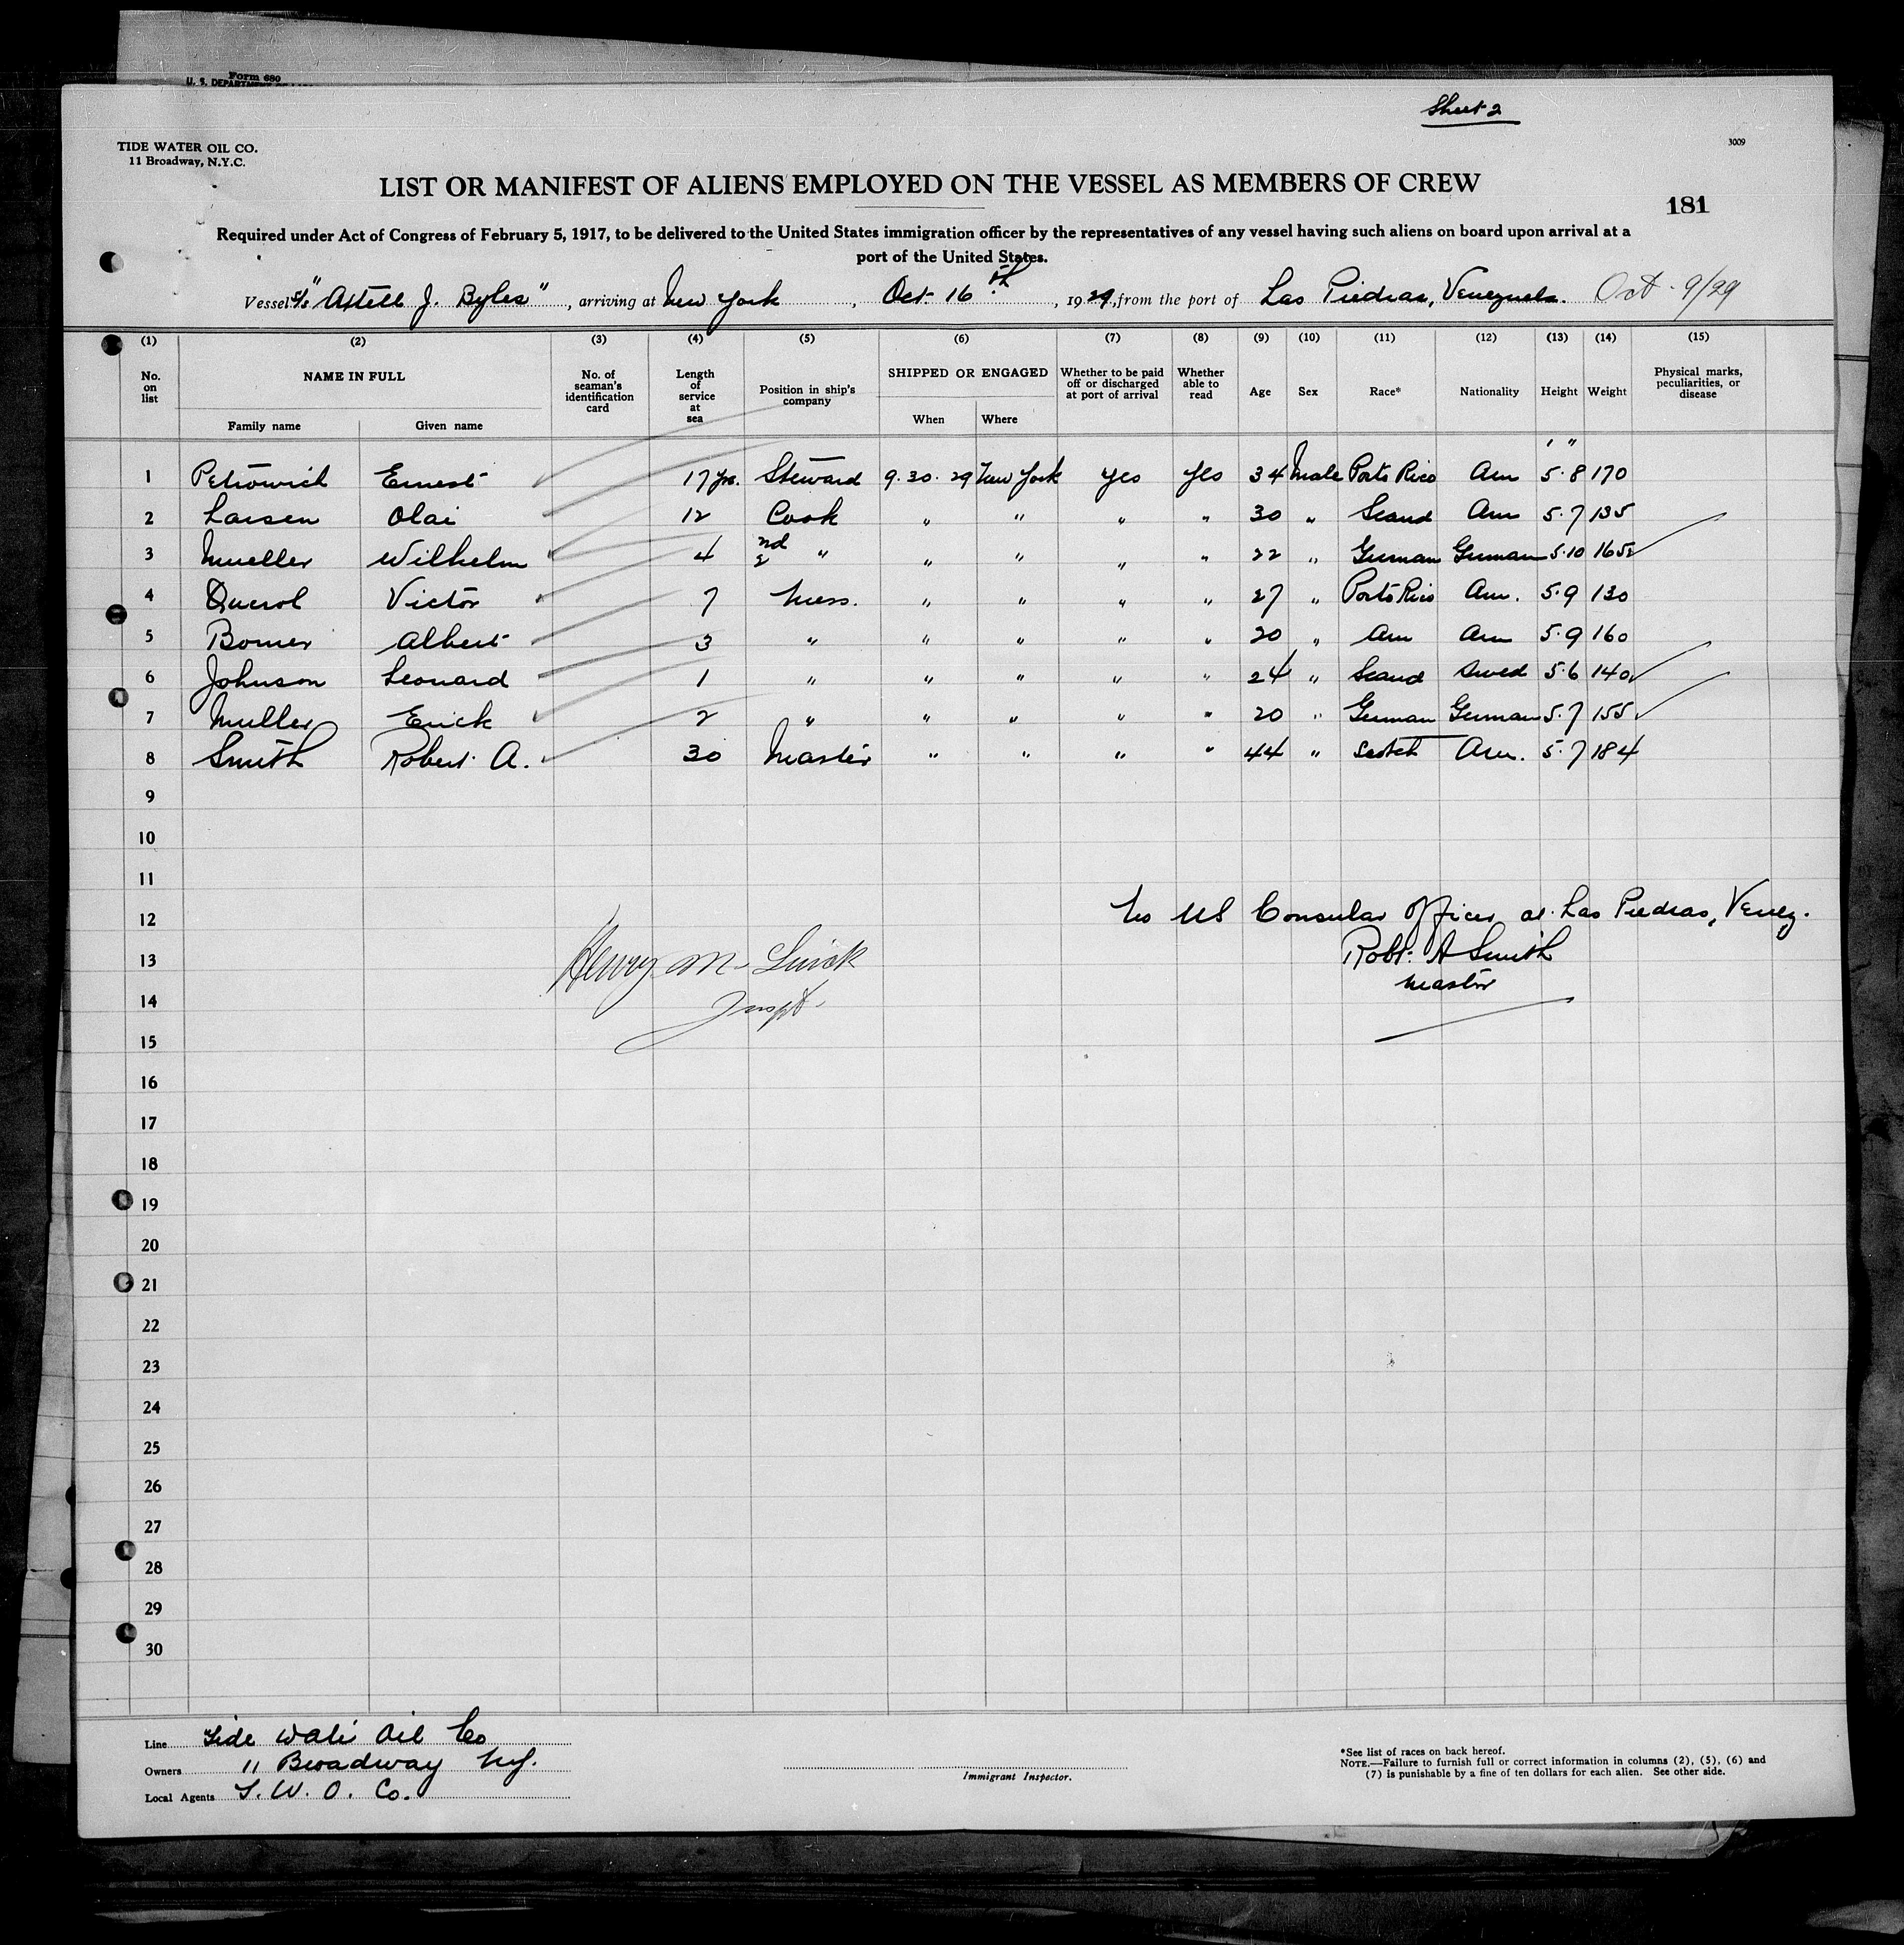 Form 680
U. S. DEPARTMENT OF
Sheet 2
TIDE WATER OIL CO.
11 Broadway, N.Y.C.
3009
LIST OR MANIFEST OF ALIENS EMPLOYED ON THE VESSEL AS MEMBERS OF CREW
181
Required under Act of Congress of February 5, 1917, to be delivered to the United States immigration officer by the representatives of any vessel having such aliens on board upon arrival at a
port of the United States.
Vessel S/S "Axtell J. Byles", arriving at New York, Oct 16th, 1929, from the port of Las Piedras, Venezuela. Oct 9/29
(1) (2) (3) (4) (5) (6) (7) (8) (9) (10) (11) (12) (13) (14) (15)
No. on list NAME IN FULL Family name Given name No. of seaman's identification card Length of service at sea Position in ship's company SHIPPED OR ENGAGED When Where Whether to be paid off or discharged at port of arrival Whether able to read Age Sex Race* Nationality Height Weight Physical marks, peculiarities, or disease
' "
1 Petrowich Ernest 17 yrs. Steward 9.30.29 New York Yes Yes 34 Male Porto Rico Am 5.8 170
2 Larsen Olai 12 Cook " " " " 30 " Scand Am 5.7 135
3 Mueller Wilhelm 4 2nd " " " " " 22 " German German 5.10 165
4 Querol Victor 7 Mess. " " " " 27 " Porto Rico Am. 5.9 130
5 Bomer Albert 3 " " " " " 20 " Am Am 5.9 160
6 Johnson Leonard 1 " " " " " 24 " Scand Swed 5.6 140
7 Muller Erick 2 " " " " " 20 " German German 5.7 155
8 Smith Robert A. 30 Master " " " " 44 " Scotch Am. 5.7 184
9
10
11
12 No US Consular Officer at Las Piedras, Venez.
13 Henry M. Robt. A Smith
14 Inspt. Master
15
16
17
18
19
20
21
22
23
24
25
26
27
28
29
30
Line Tide Water Oil Co
Owners 11 Broadway N.Y.
Local Agents T. W. O. Co.
Immigrant Inspector.
*See list of races on back hereof.
NOTE.—Failure to furnish full or correct information in columns (2), (5), (6) and
(7) is punishable by a fine of ten dollars for each alien. See other side.